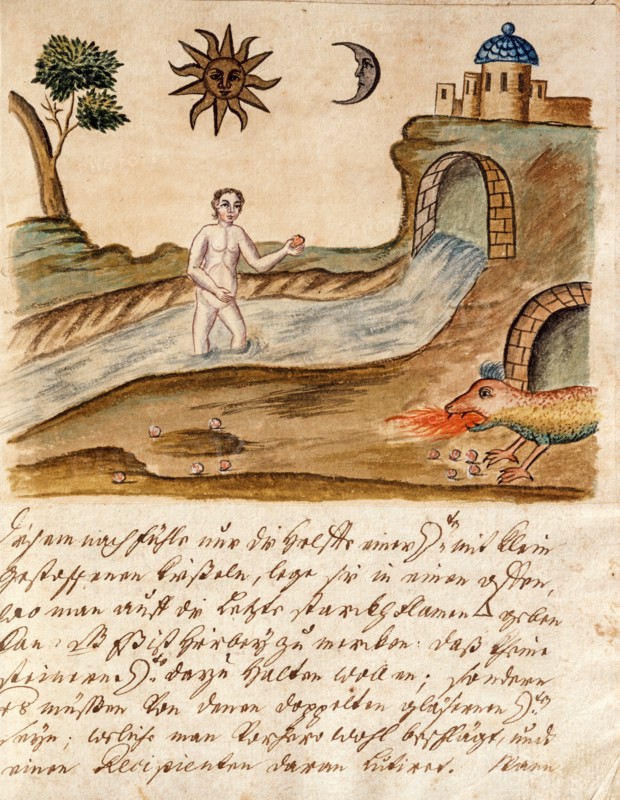 Diesem nach fühle nur die Helffte einer mit klein
gestossenen Kißeln, lege sie in einen offen,
wo man auff die Letzte starckh flamen △ geben
Kan: NB Es ist hierbey zu mercken: daß Keine
steinerne darzu halten wollen; sondern
es müssen von denen doppelten gläsernen
seyn; welche man vorhero wohl beschlägt, und
einen Recipienten daran lutiret. Wann